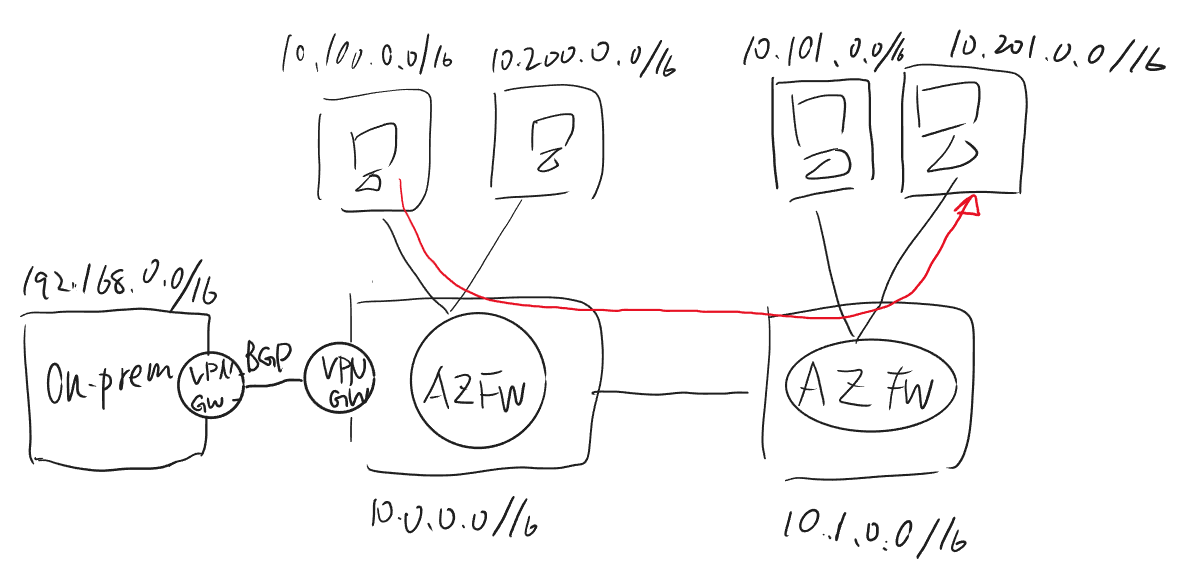 10.100.0.0/16
10.200.0.0/16
10.101.0.0/16
10.201.0.0/16
192.168.0.0/16
On-prem
VPN
GW
BGP
VPN
GW
AZFW
AZ FW
10.0.0.0/16
10.1.0.0/16